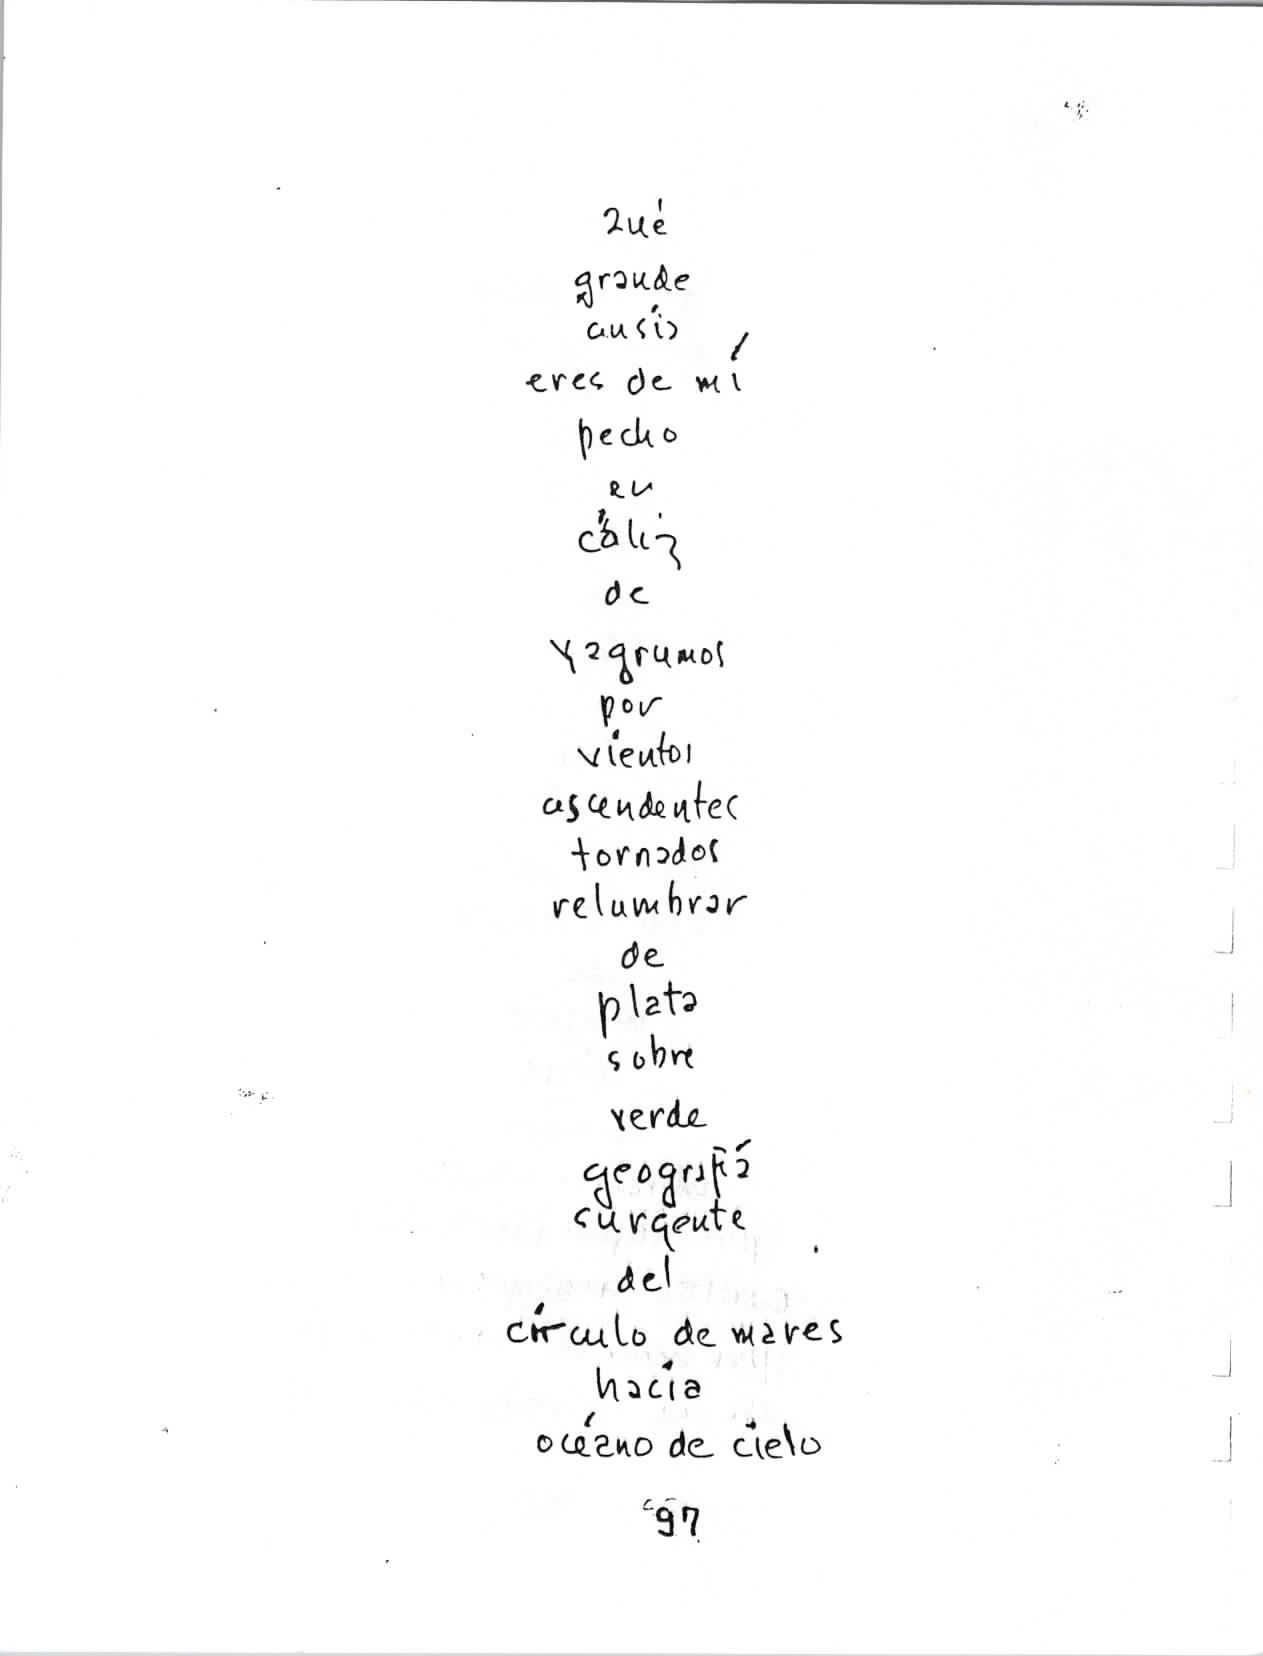 Qué
grande
ansia
eres de mí
pecho
en
cáliz
de
Yagrumos
por
vientos
ascendentes
tornados
relumbrar
de
plata
sobre
verde
geografía
surgente
del
círculo de mares
hacia
océano de cielo
'97